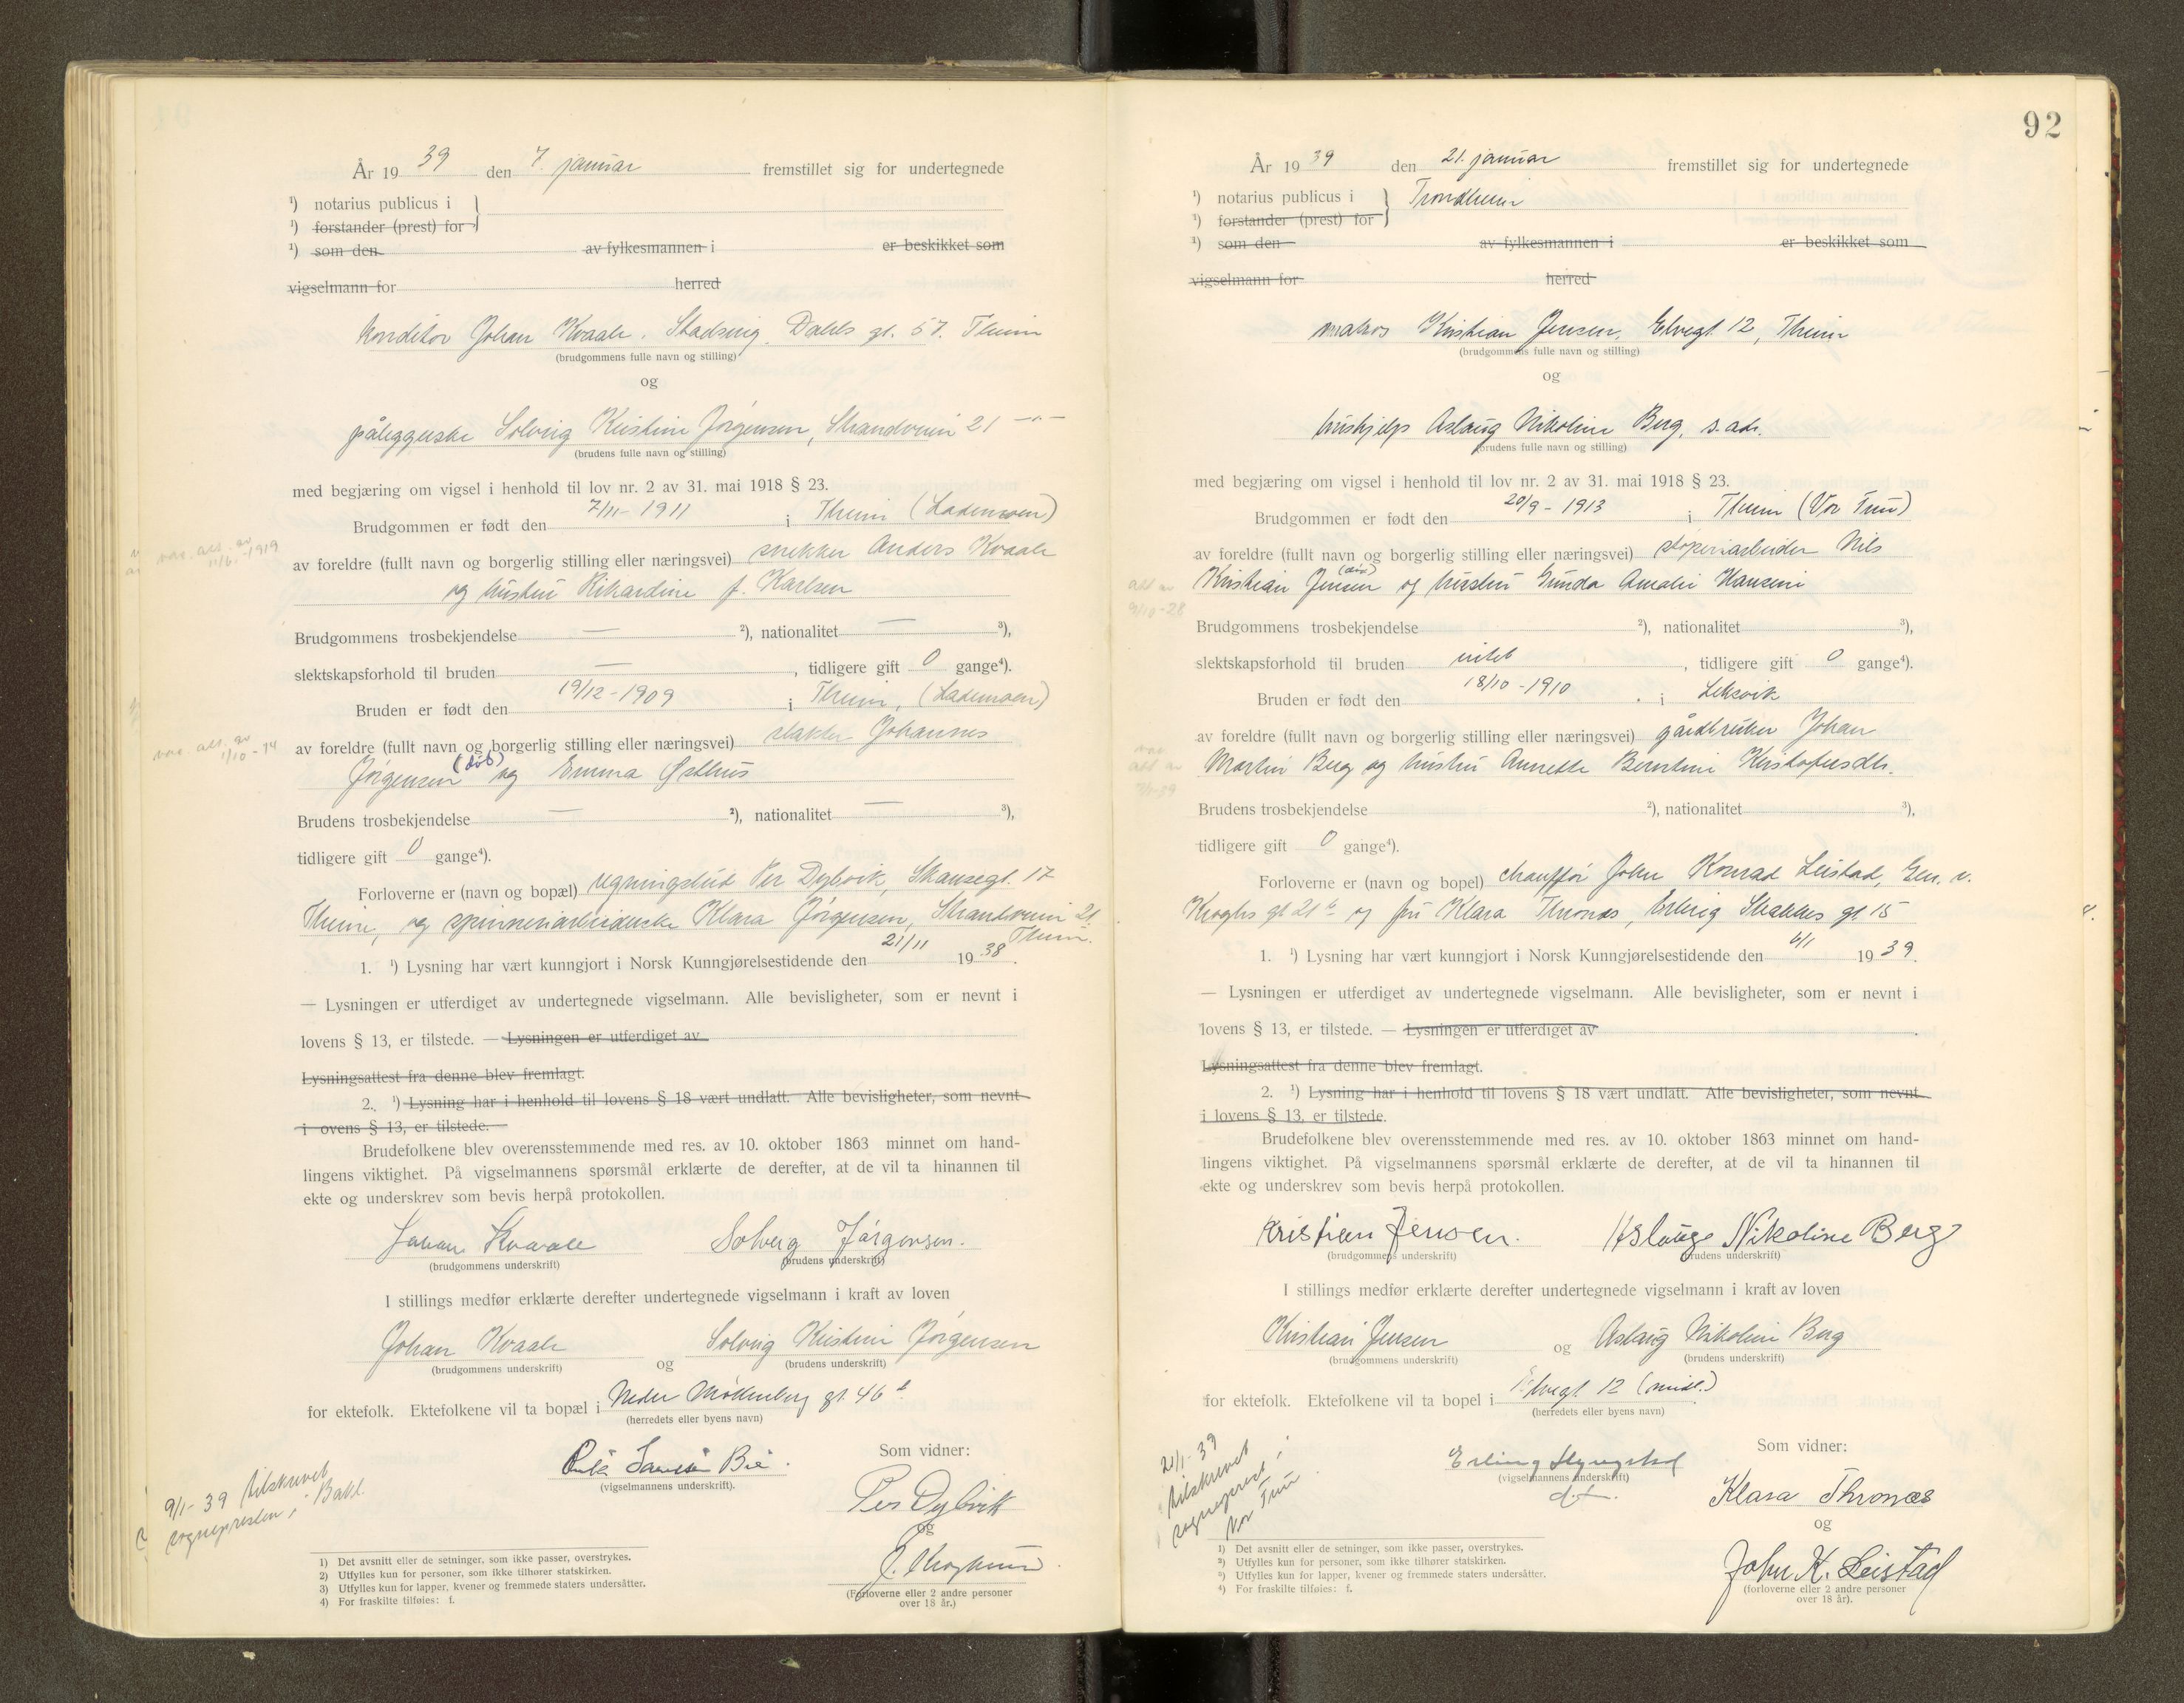 År 19 39 den 7. januar fremstillet sig for undertegnede
1) notarius publicus i
1) forstander (prest) for
1) som den av fylkesmannen i er beskikket som
vigselmann for herred
konditor Johan Kvaale, Stadsing. Dahls gt. 57. Theim
(brudgommens fulle navn og stilling)
og
påleggerske Solveig Kristine Jørgensen, Strandveien 21 —"—
(brudens fulle navn og stilling)
med begjæring om vigsel i henhold til lov nr. 2 av 31. mai 1918 § 23.
Brudgommen er født den 7/11 - 1911 i Theim (Lademoen)
av foreldre (fullt navn og borgerlig stilling eller næringsvei) snekker Anders Kvaale
og hustru Rikardine f. Karlsen
vac. att. av
11/6 - 1919
Brudgommens trosbekjendelse — 2), nationalitet — 3),
slektskapsforhold til bruden — , tidligere gift 0 gange4).
Bruden er født den 19/12 - 1909 i Theim, (Lademoen)
av foreldre (fullt navn og borgerlig stilling eller næringsvei) slakter Johannes
Jørgensen (død) og Emma Østhus
vac. att. av
1/10 - 14
Brudens trosbekjendelse — 2), nationalitet — 3),
tidligere gift 0 gange4).
Forloverne er (navn og bopæl) regningsbud Per Dybvik, Skansegt. 17
Theim, og spinneriarbeiderske Klara Jørgensen, Strandveien 21
Theim.
1. 1) Lysning har vært kunngjort i Norsk Kunngjørelsestidende den 21/11 19 38.
— Lysningen er utferdiget av undertegnede vigselmann. Alle bevisligheter, som er nevnt i
lovens § 13, er tilstede. — Lysningen er utferdiget av
Lysningsattest fra denne blev fremlagt.
2. 1) Lysning har i henhold til lovens § 18 vært undlatt. Alle bevisligheter, som nevnt
i ovens § 13, er tilstede.
Brudefolkene blev overensstemmende med res. av 10. oktober 1863 minnet om hand-
lingens viktighet. På vigselmannens spørsmål erklærte de derefter, at de vil ta hinannen til
ekte og underskrev som bevis herpå protokollen.
Johan Kvaale Solveig Jørgensen.
(brudgommens underskrift) (brudens underskrift)
I stillings medfør erklærte derefter undertegnede vigselmann i kraft av loven
Johan Kvaale og Solveig Kristine Jørgensen
(brudgommens underskrift) (brudens underskrift)
for ektefolk. Ektefolkene vil ta bopæl i Nedre Møllenberg gt. 46
(herredets eller byens navn)
Som vidner:
(vigselmannens underskrift).
Per Dybvik
og
(Forloverne eller 2 andre personer
over 18 år.)
9/1 - 39 tilskrevet
sognepresten i Bakl.
1) Det avsnitt eller de setninger, som ikke passer, overstrykes.
2) Utfylles kun for personer, som ikke tilhører statskirken.
3) Utfylles kun for lapper, kvener og fremmede staters undersåtter.
4) For fraskilte tilføies: f.
92
År 19 39 den 21. januar fremstillet sig for undertegnede
1) notarius publicus i Trondheim
1) forstander (prest) for
1) som den av fylkesmannen i er beskikket som
vigselmann for herred
matros Kristian Jensen, Elvegt. 12, Theim
(brudgommens fulle navn og stilling)
og
hushjelp Aslaug Nikoline Berg, s. adr.
(brudens fulle navn og stilling)
med begjæring om vigsel i henhold til lov nr. 2 av 31. mai 1918 § 23.
Brudgommen er født den 20/9 - 1913 i Theim (Vor Frue)
av foreldre (fullt navn og borgerlig stilling eller næringsvei) støperiarbeider Nils
Kristian Jensen (død) og hustru Gunda Amalie Hansine
att av
9/10 - 28
Brudgommens trosbekjendelse 2), nationalitet 3),
slektskapsforhold til bruden intet , tidligere gift 0 gange4).
Bruden er født den 18/10 - 1910 i Leksvik
av foreldre (fullt navn og borgerlig stilling eller næringsvei) gårdbruker Johan
Martin Berg og hustru Annette Berntine Kristofersdtr.
vac
att av
Brudens trosbekjendelse 2), nationalitet 3),
tidligere gift 0 gange4).
Forloverne er (navn og bopel) chauffør John Konrad Leistad, Gen. v.
Kroghs gt 21 b og fru Klara Thronæs, Erling Skakkes gt 15
1. 1) Lysning har vært kunngjort i Norsk Kunngjørelsestidende den 6/1 19 39.
— Lysningen er utferdiget av undertegnede vigselmann. Alle bevisligheter, som er nevnt i
lovens § 13, er tilstede. — Lysningen er utferdiget av
Lysningsattest fra denne blev fremlagt.
2. 1) Lysning har i henhold til lovens § 18 vært undlatt. Alle bevisligheter, som nevnt
i lovens § 13, er tilstede.
Brudefolkene blev overensstemmende med res. av 10. oktober 1863 minnet om hand-
lingens viktighet. På vigselmannens spørsmål erklærte de derefter, at de vil ta hinannen til
ekte og underskrev som bevis herpå protokollen.
Kristian Jensen. Aslaug Nikoline Berg
(brudgommens underskrift) (brudens underskrift)
I stillings medfør erklærte derefter undertegnede vigselmann i kraft av loven
Kristian Jensen og Aslaug Nikoline Berg
(brudgommens underskrift) (brudens underskrift)
for ektefolk. Ektefolkene vil ta bopel i Elvegt 12 (midl.)
(herredets eller byens navn)
Som vidner:
Erling
(vigselmannens underskrift)
Klara Thronæs
og
John K. Leistad
(forloverne eller 2 andre personer
over 18 år).
21/1 - 39
tilskrevet
sogneprest i
Vor Frue
1) Det avsnitt eller de setninger, som ikke passer, overstrykes.
2) Utfylles kun for personer, som ikke tilhører statskirken.
3) Utfylles kun for lapper, kvener og fremmede staters undersåtter.
4) For fraskilte tilføies: f.